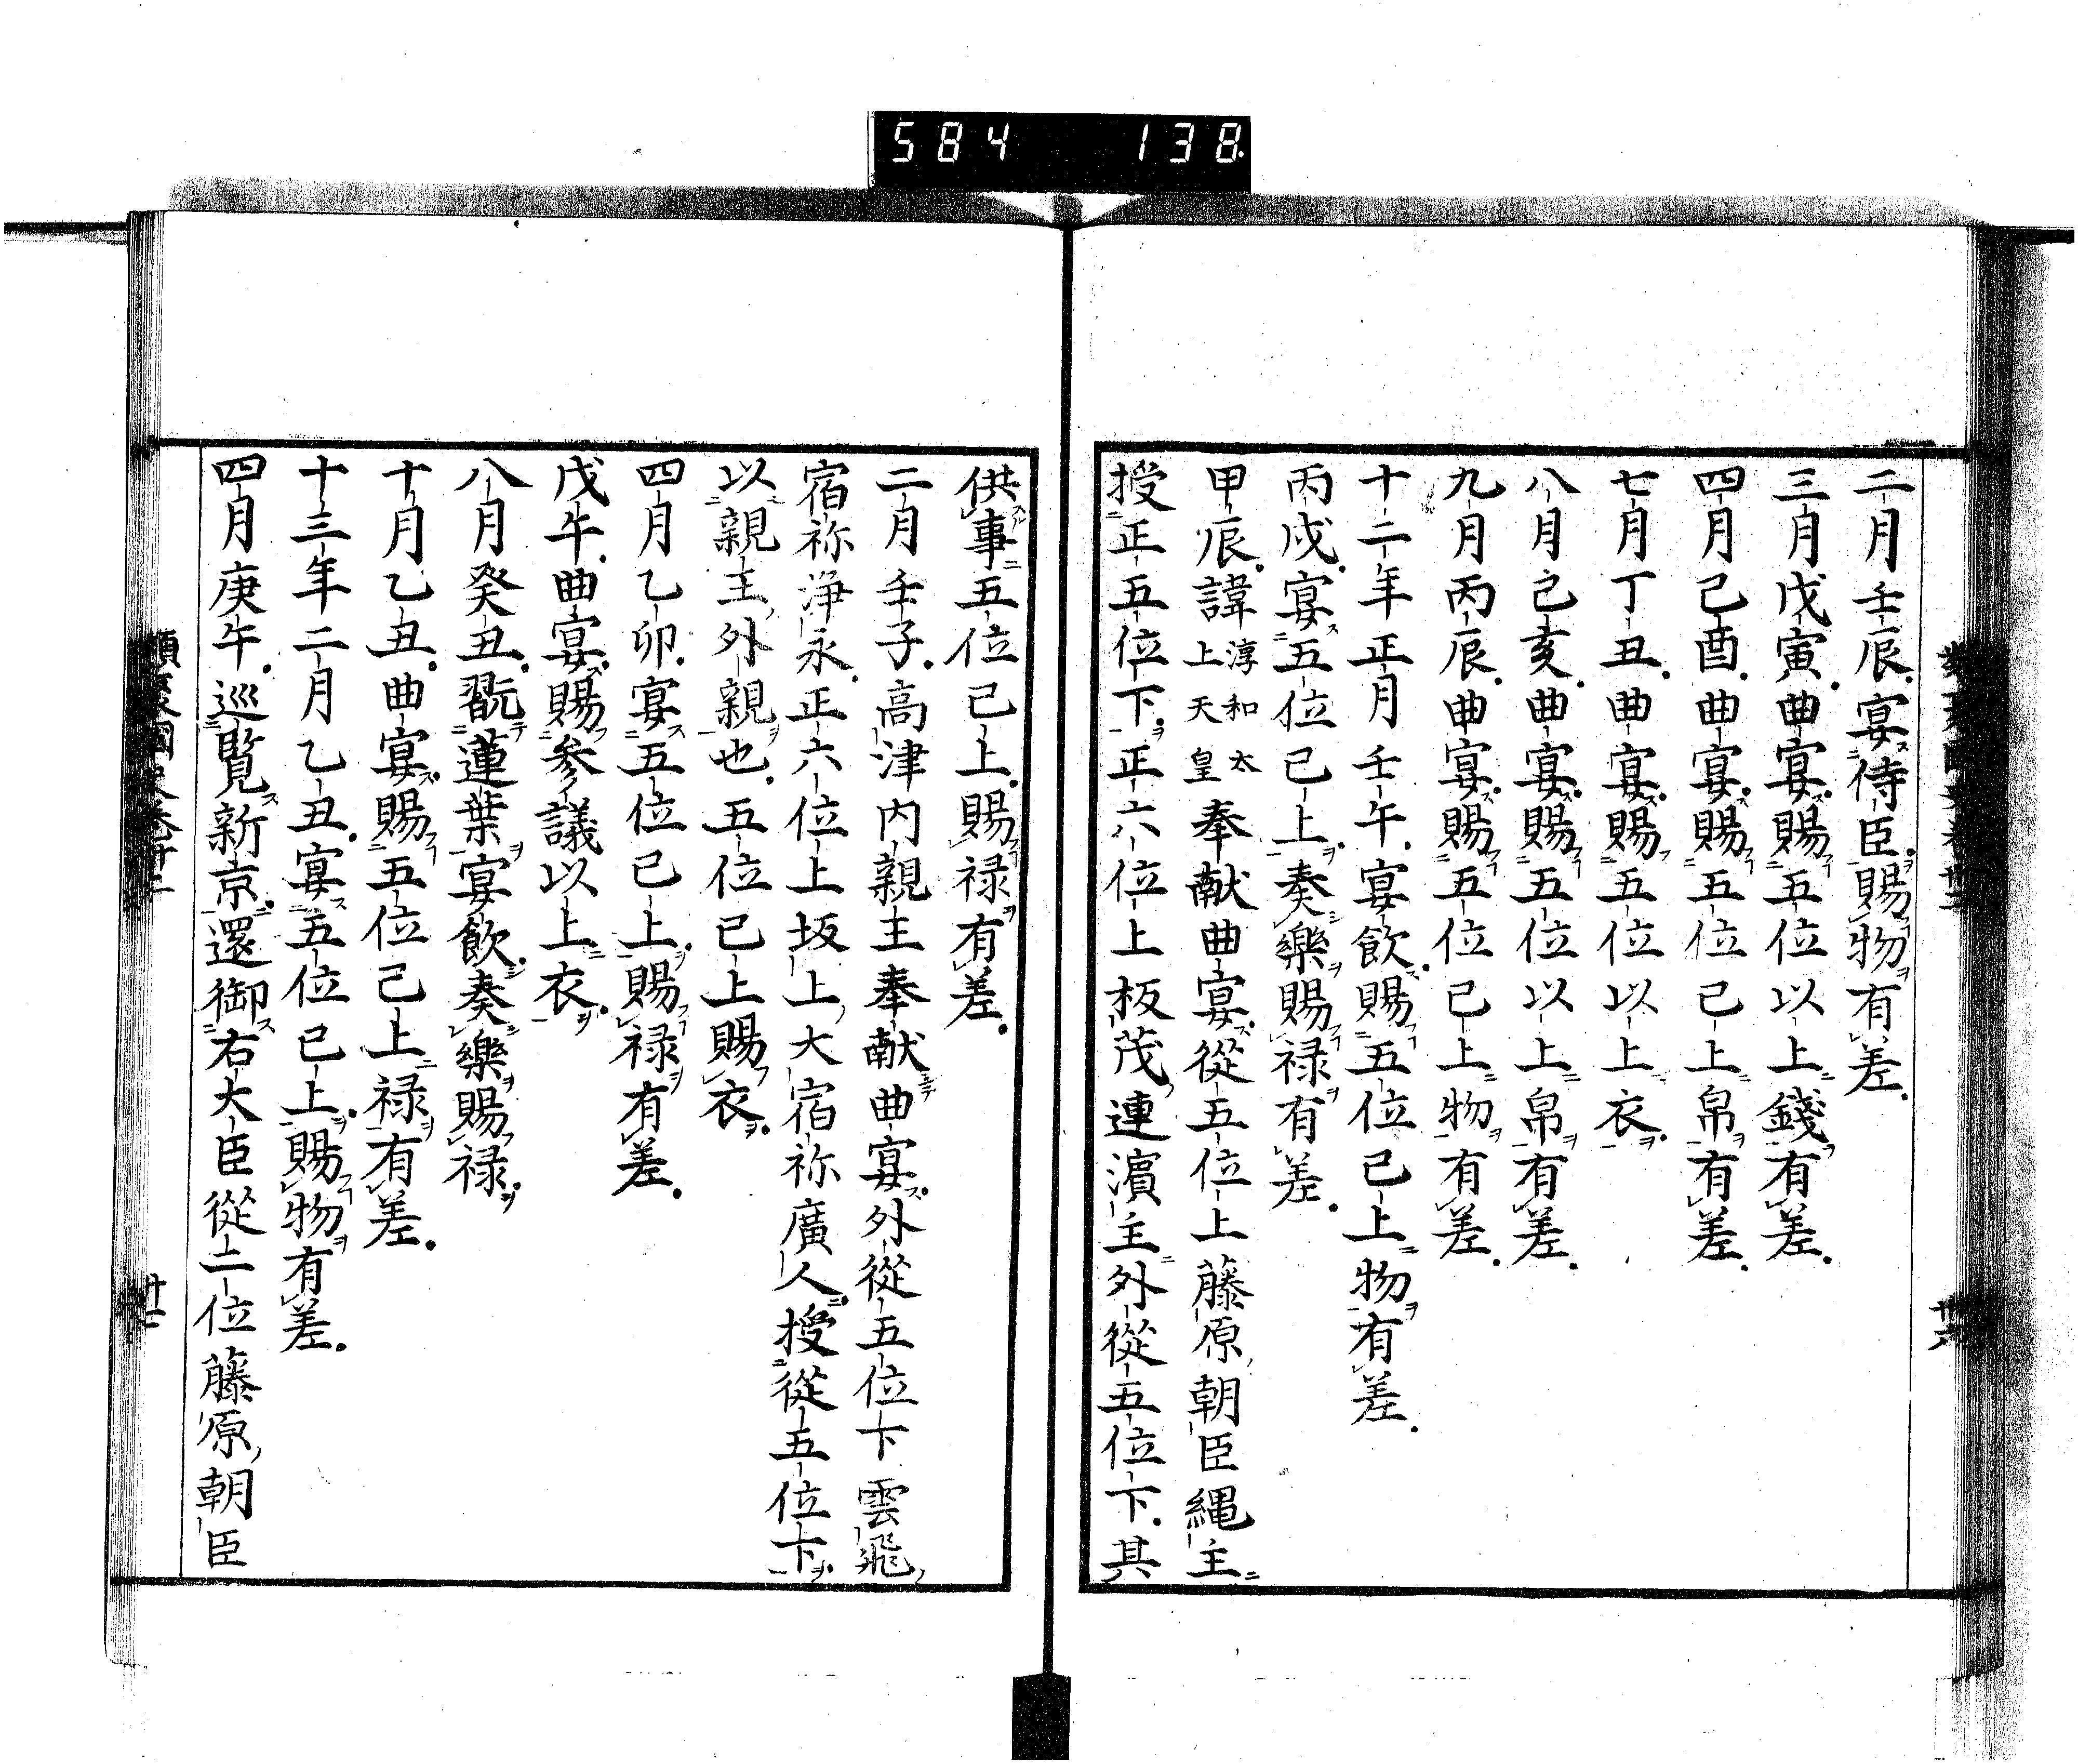 584 138
二月壬辰宴侍臣賜物有差
三月戊寅曲宴賜五位以上錢有差
四月己酉曲宴賜五位已上帛有差
七月丁丑曲宴賜五位以上衣
八月己亥曲宴賜五位以上帛有差
九月丙辰曲宴賜五位已上物有差
十二年正月壬午宴飲賜五位已上物有差
丙戌宴五位已上奏樂賜禄有差
甲辰諱淳和太上天皇奉献曲宴從五位上藤原朝臣縄主
授正五位下正六位上板茂連濵主外從五位下其
供事五位已上賜禄有差
二月壬子高津内親王奉献曲宴外從五位下雲飛
宿祢浄永正六位上坂上大宿祢廣人授從五位下
以親王外親也五位已上賜衣
四月乙卯宴五位已上賜禄有差
戊午曲宴賜参議以上衣
八月癸丑翫蓮葉宴飲奏樂賜禄
十月乙丑曲宴賜五位已上禄有差
十三年二月乙丑宴五位已上賜物有差
四月庚午巡覧新京還御右大臣從二位藤原朝臣